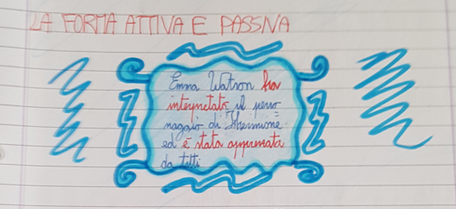 LA FORMA ATTIVA E PASSIVA
Emma Watson ha
interpretato il perso
naggio di "Hermione"
ed è stata apprezzata
da tutti